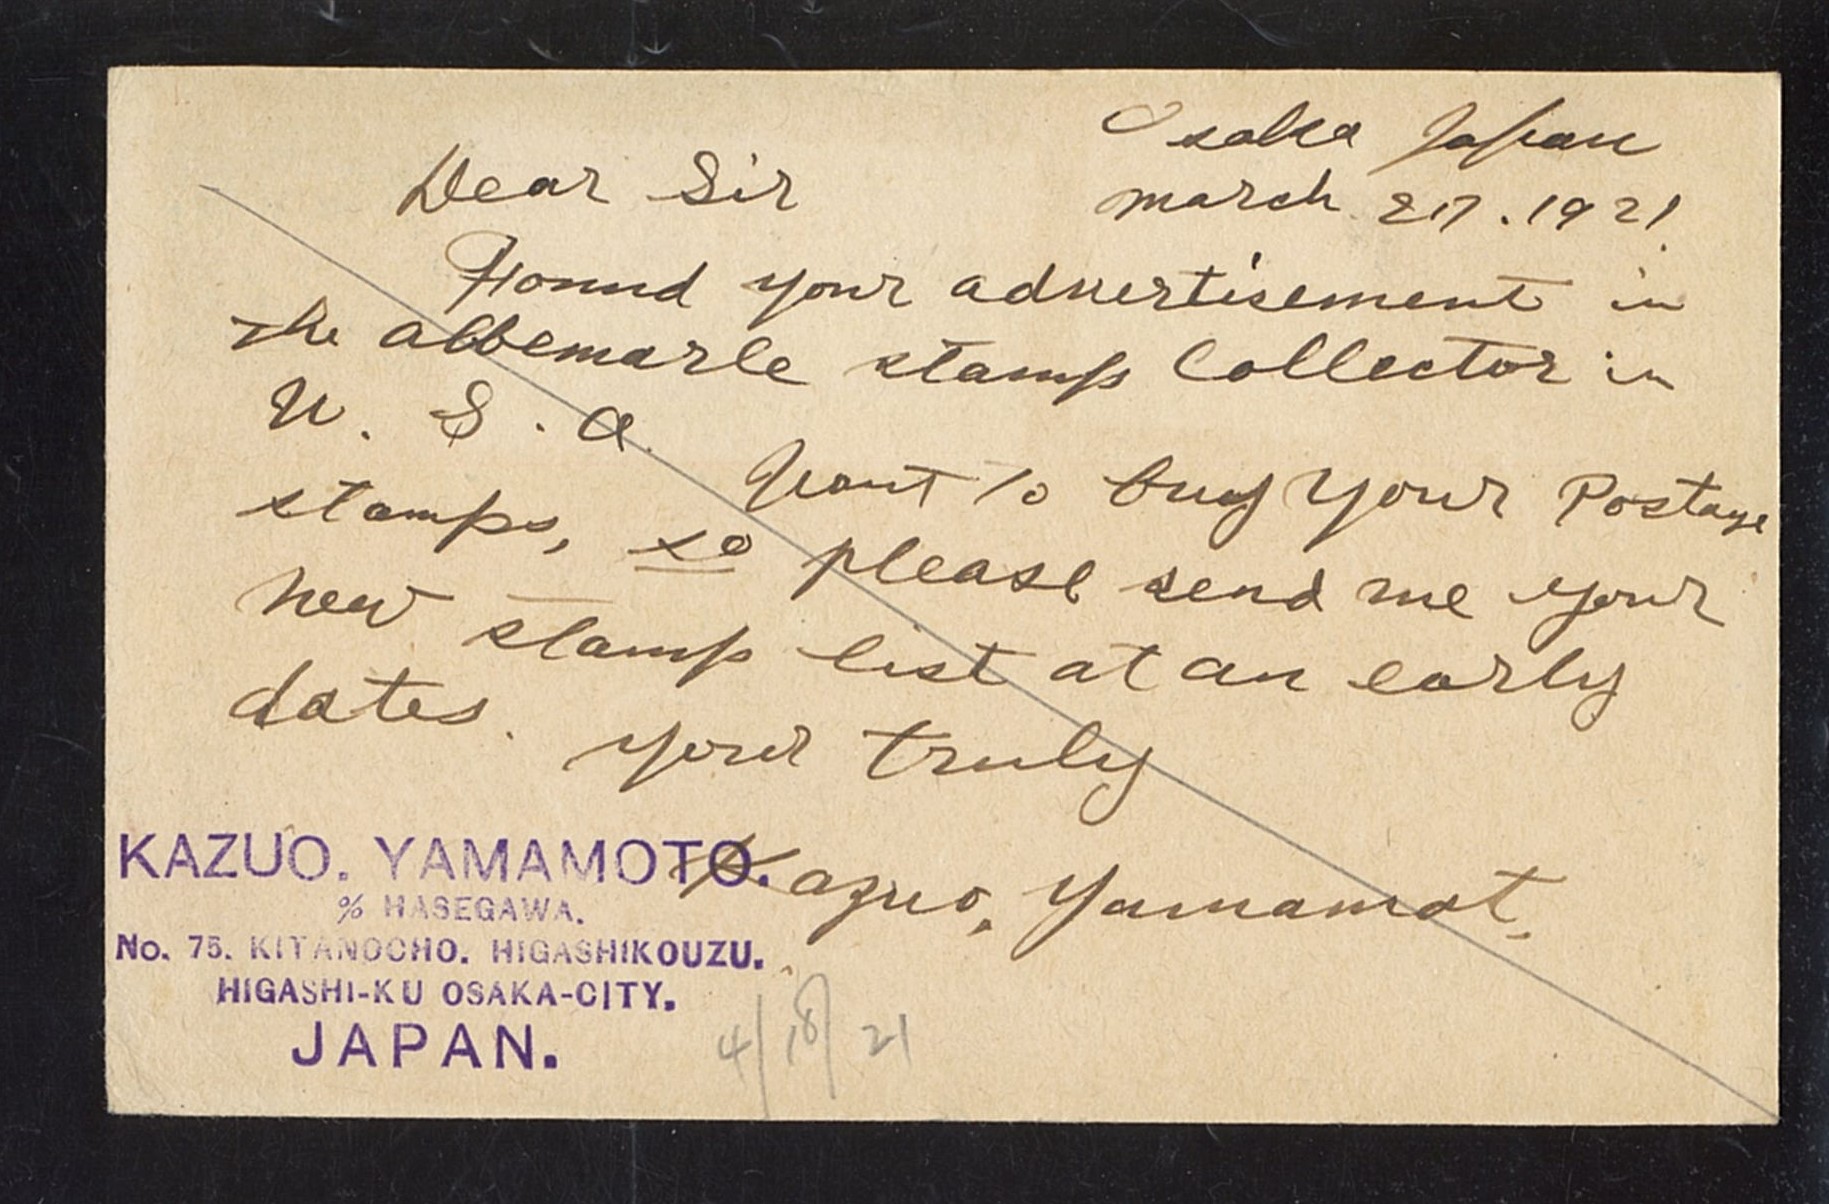 Osaka Japan
Dear Sir
march 27. 1921.
Found your advertisement in
the albemarle stamp Collector in
U. S. a.
Want to buy your Postage
stamps, so please send me your
new stamp list at an early
dates.
your truly
Kazuo, Yamamot.
KAZUO. YAMAMOTO.
% HASEGAWA.
No. 75. KITANOCHO. HIGASHIKOUZU.
HIGASHI-KU OSAKA-CITY.
JAPAN.
4/18/21